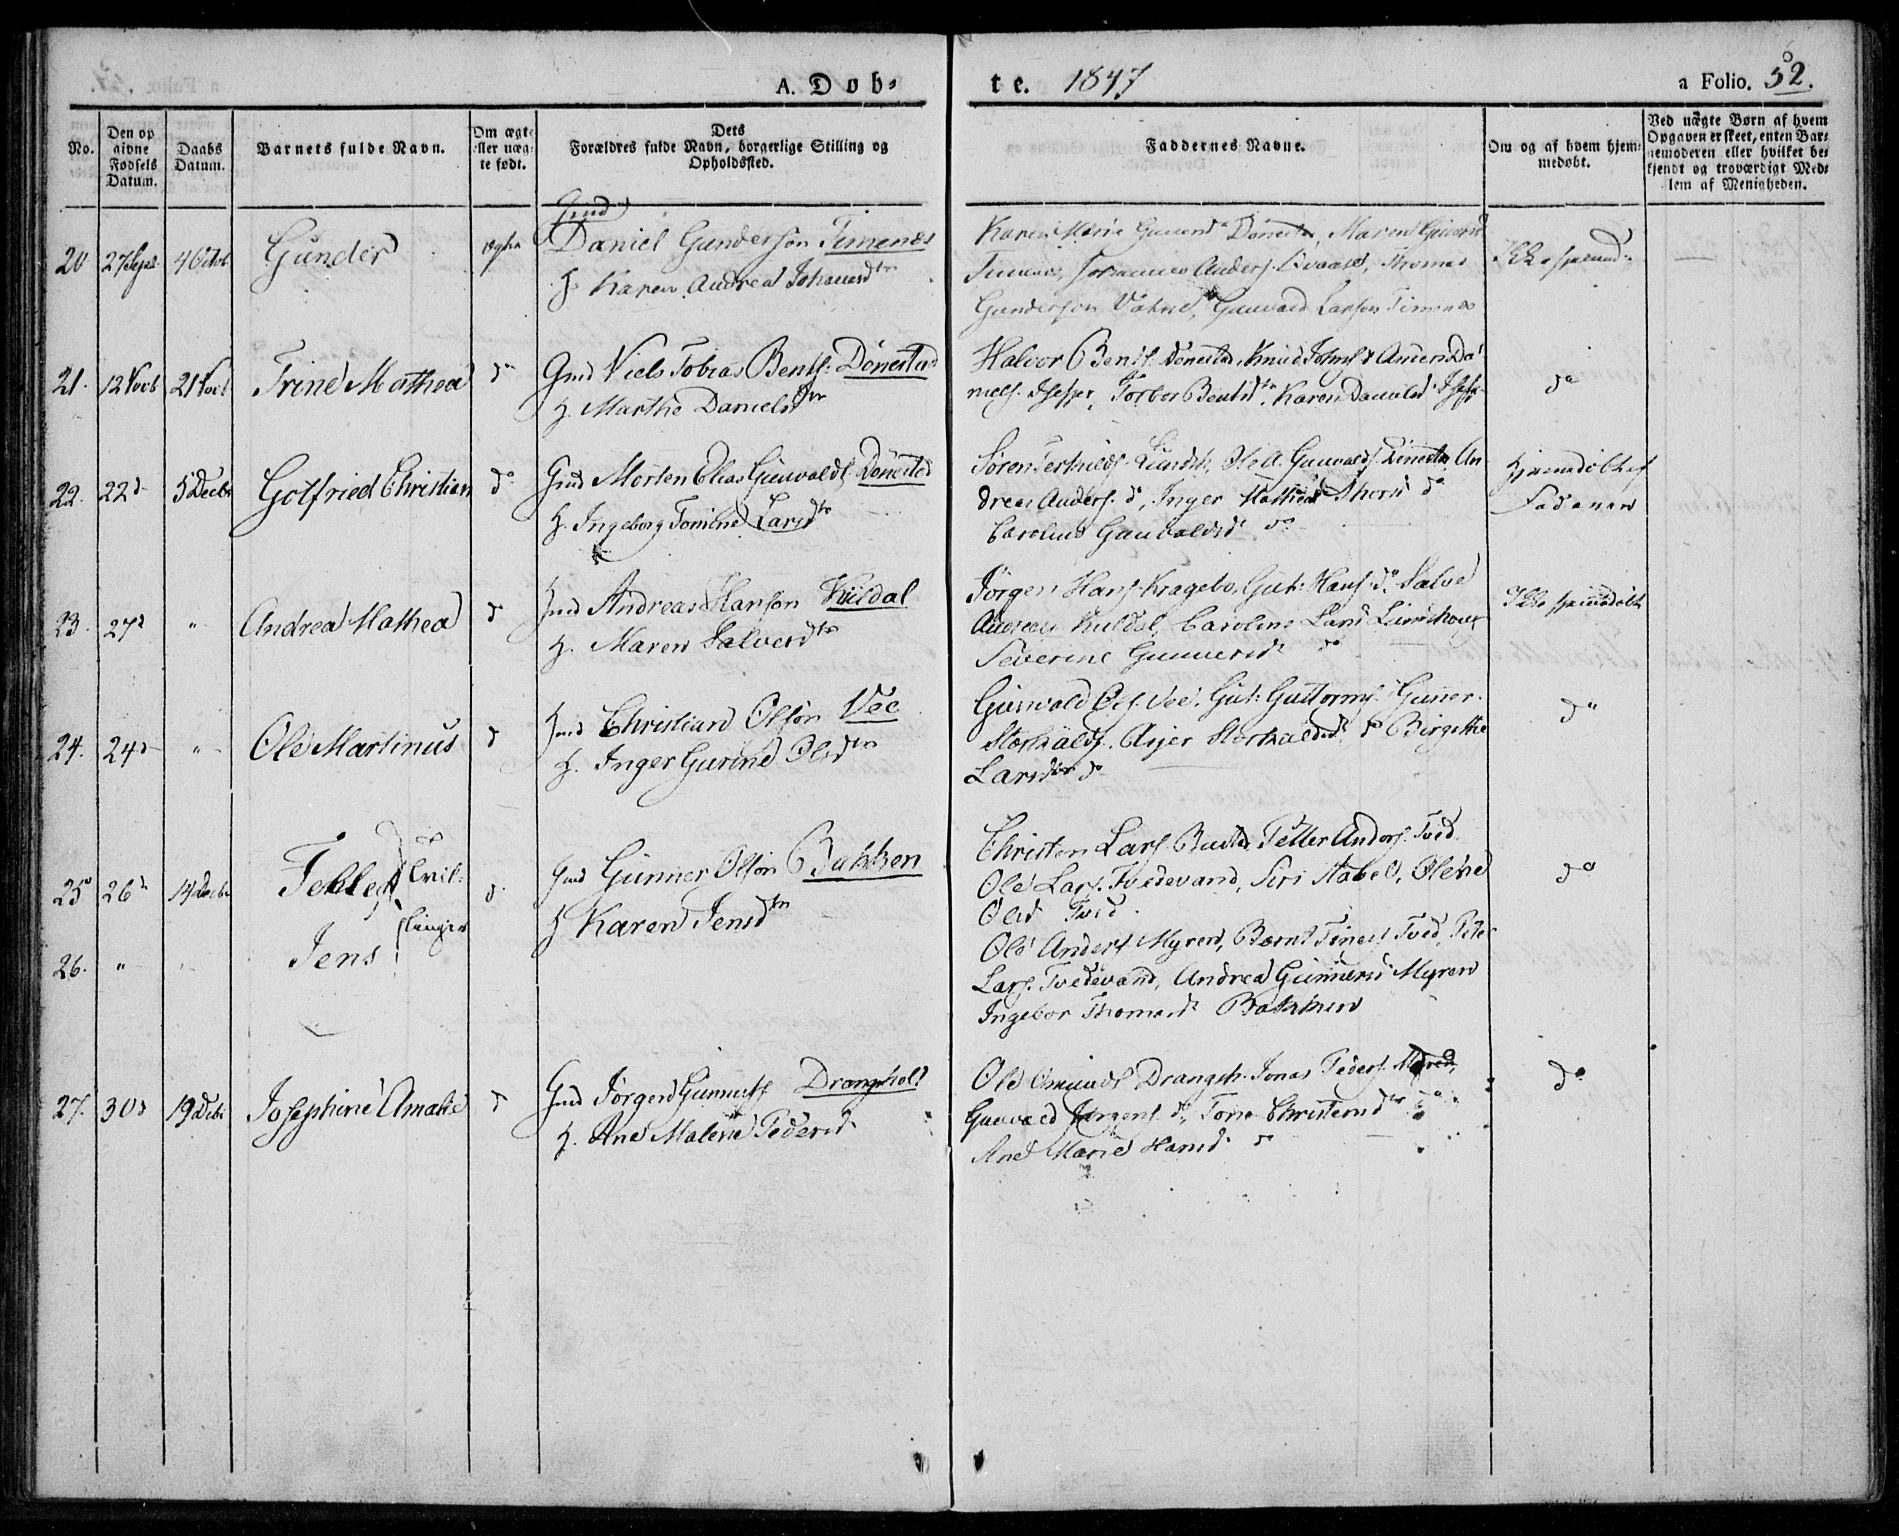 A. Døb-
te. 1847
a Folio. 52.
No.
Den op
givne
Fødsels
Datum.
Daabs
Datum.
Barnets fulde Navn.
Om ægt-
eller uæg-
te født.
Dets
Forældres fulde Navn, borgerlige Stilling og
Opholdssted.
Faddernes Navne.
Om og af hvem hjem-
medøbt.
Ved uægte Børn af hvem
Opgaven er skeet, enten Bar-
nemoderen eller hvilket be-
kjendt og troværdigt Med-
lem af Menigheden.
20 27 Sept 4 Octob Gunder ægte
Gmd
Daniel Gunderson Timenes
H. Karen Andrea Johannesdtr
Karen Marie Gunersd Dønestad, Maren
Timenes, Johannes Anders. Kvaase, Thomas
Gunderson Vatne, Gunvald Larson Timenes
21. 12 Novb 21 Novb Trine Mathea do
Gmd Niels Tobias Bents: Dønestad
H. Marthe Danielsdtr
Halvor Bents. Dønestad, Knud Johns Anders Da
niels. Torbor Bentsdtr. Karen Danielsd
do
22. 22d 5 Decbr Gotfried Christian do
Gmd Morten Elias Gunvalds. Dønestad
H. Ingeborg Tomine Larsdtr
Søren Terkilds. Ole A. Gunvalds Dønestad, An
dreas Anders. do, Inger Mathea do
Caroline Gunvaldsd do
Hjemmedøbt af
Faderen
23. 27d " Andrea Mathea d
Gmd Andreas Hanson Kuldal
H. Maren Salvesdtr
Jørgen Hans. Kragebo, Gut: Hans. do Salve
Andreas Kuldal, Caroline Larsd
Severine Gunnersd do
Ikke hjemmedøbt
24. 24d " Ole Martinus d
Gmd Christian Olson Vee
H. Inger Gurine Olsdtr
Gunvald Ols. Vee. Gut: Guttorms. Gunner
Storkalds. Asjer Storkaldsd do Birgethe
Larsdtr do
do
25 26d 14 Decbr Tellef Tvil-
d
Gmd Gunner Olson Bakken
H Karen Jensdtr
Christen Lars. Teller Anders. Tved
Ole Lars. Tvedevand, Siri Stabel, Olene
Olsd Tved.
do
26. " Jens
slinger
Ole Anders Myren, Bernt Tines. Tved, Peter
Lars. Tvedevand, Andrea Gunnersd Myren
Ingebor Thomasd Bakken
27. 30d 19 Decbr Josephine Amalie d
Gmd Jørgen Gunners. Drangsholt
H. Ane Malene Pedersd
Ole Omunds Drangsh. Jonas Peders.
Gunvald Jørgens. do, Tone Christensdtr do
Ane Marie Hansd do
do